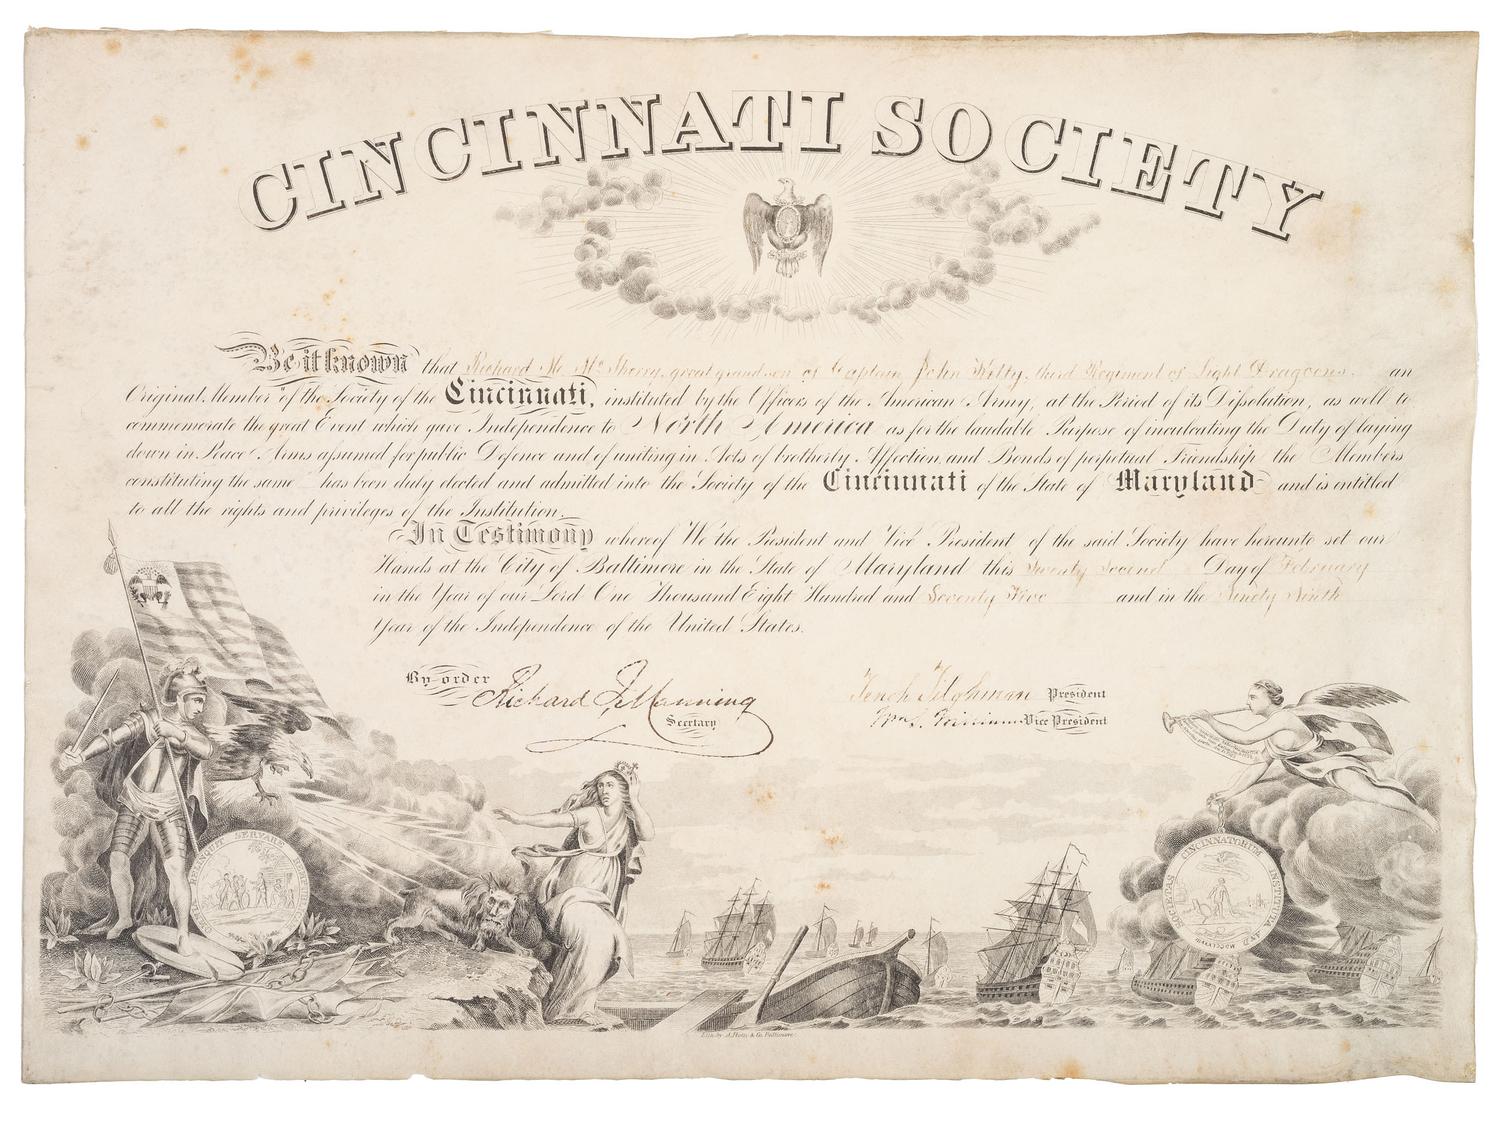 CINCINNATI SOCIETY
Be it known that Richard M. McSherry, great grandson of Captain John Kilty, third Regiment of Light Dragoons, an
Original Member of the Society of the Cincinnati, instituted by the Officers of the American Army, at the Period of its Dissolution, as well to
commemorate the great Event which gave Independence to North America as for the laudable Purpose of inculcating the Duty of laying
down in Peace Arms assumed for public Defence and of uniting in Acts of brotherly Affection, and Bonds of perpetual Friendship the Members
constituting the same has been duly elected and admitted into the Society of the Cincinnati of the State of Maryland and is entitled
to all the rights and privileges of the Institution.
In Testimony whereof We the President and Vice President of the said Society have hereunto set our
Hands at the City of Baltimore in the State of Maryland this Twenty Second Day of February
in the Year of our Lord One Thousand Eight Hundred and Seventy Five and in the Ninety Ninth
Year of the Independence of the United States.
By order Richard I. Manning Tench Tilghman President
Secrtary Vice President
SERVARE
SOCIETAS CINCINNATORUM INSTITUTA AD MDCCLXXXIII
Lith. by A. Hoen & Co. Baltimore